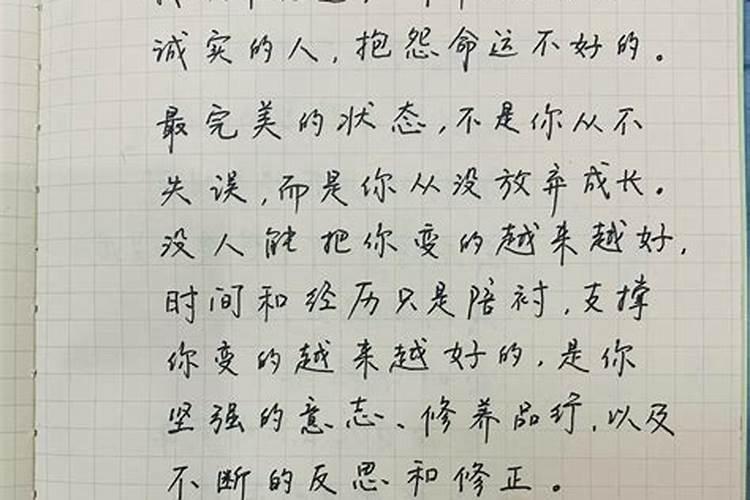 诚实的人,抱怨命运不好的。
最完美的状态,不是你从不
失误,而是你从没放弃成长。
没人能把你变的越来越好,
时间和经历只是陪衬,支撑
你变的越来越好的,是你
坚强的意志、修养品行,以及
不断的反思和修正。